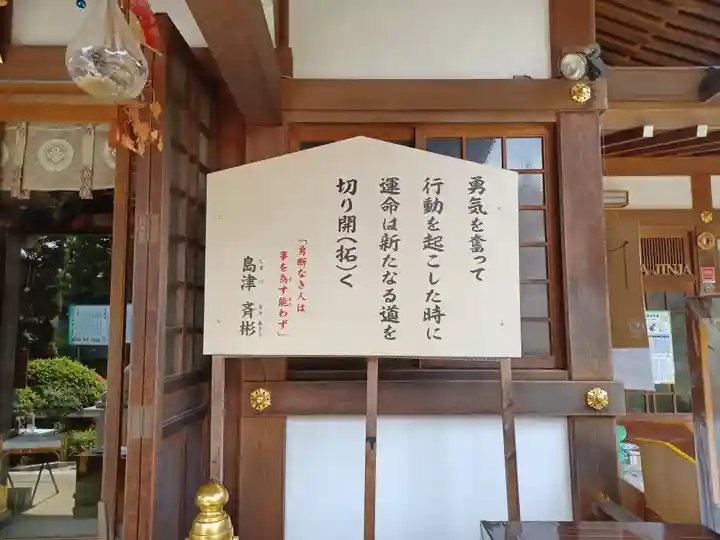 勇気を奮って
行動を起こした時に
運命は新たなる道を
切り開(拓)く
「勇断なき人は
事を為す能わず」
島津 斉彬
しまづ なりあきら
AJINJA